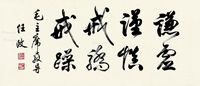 謙虚
謹慎
戒驕
戒躁
毛主席教导
任政